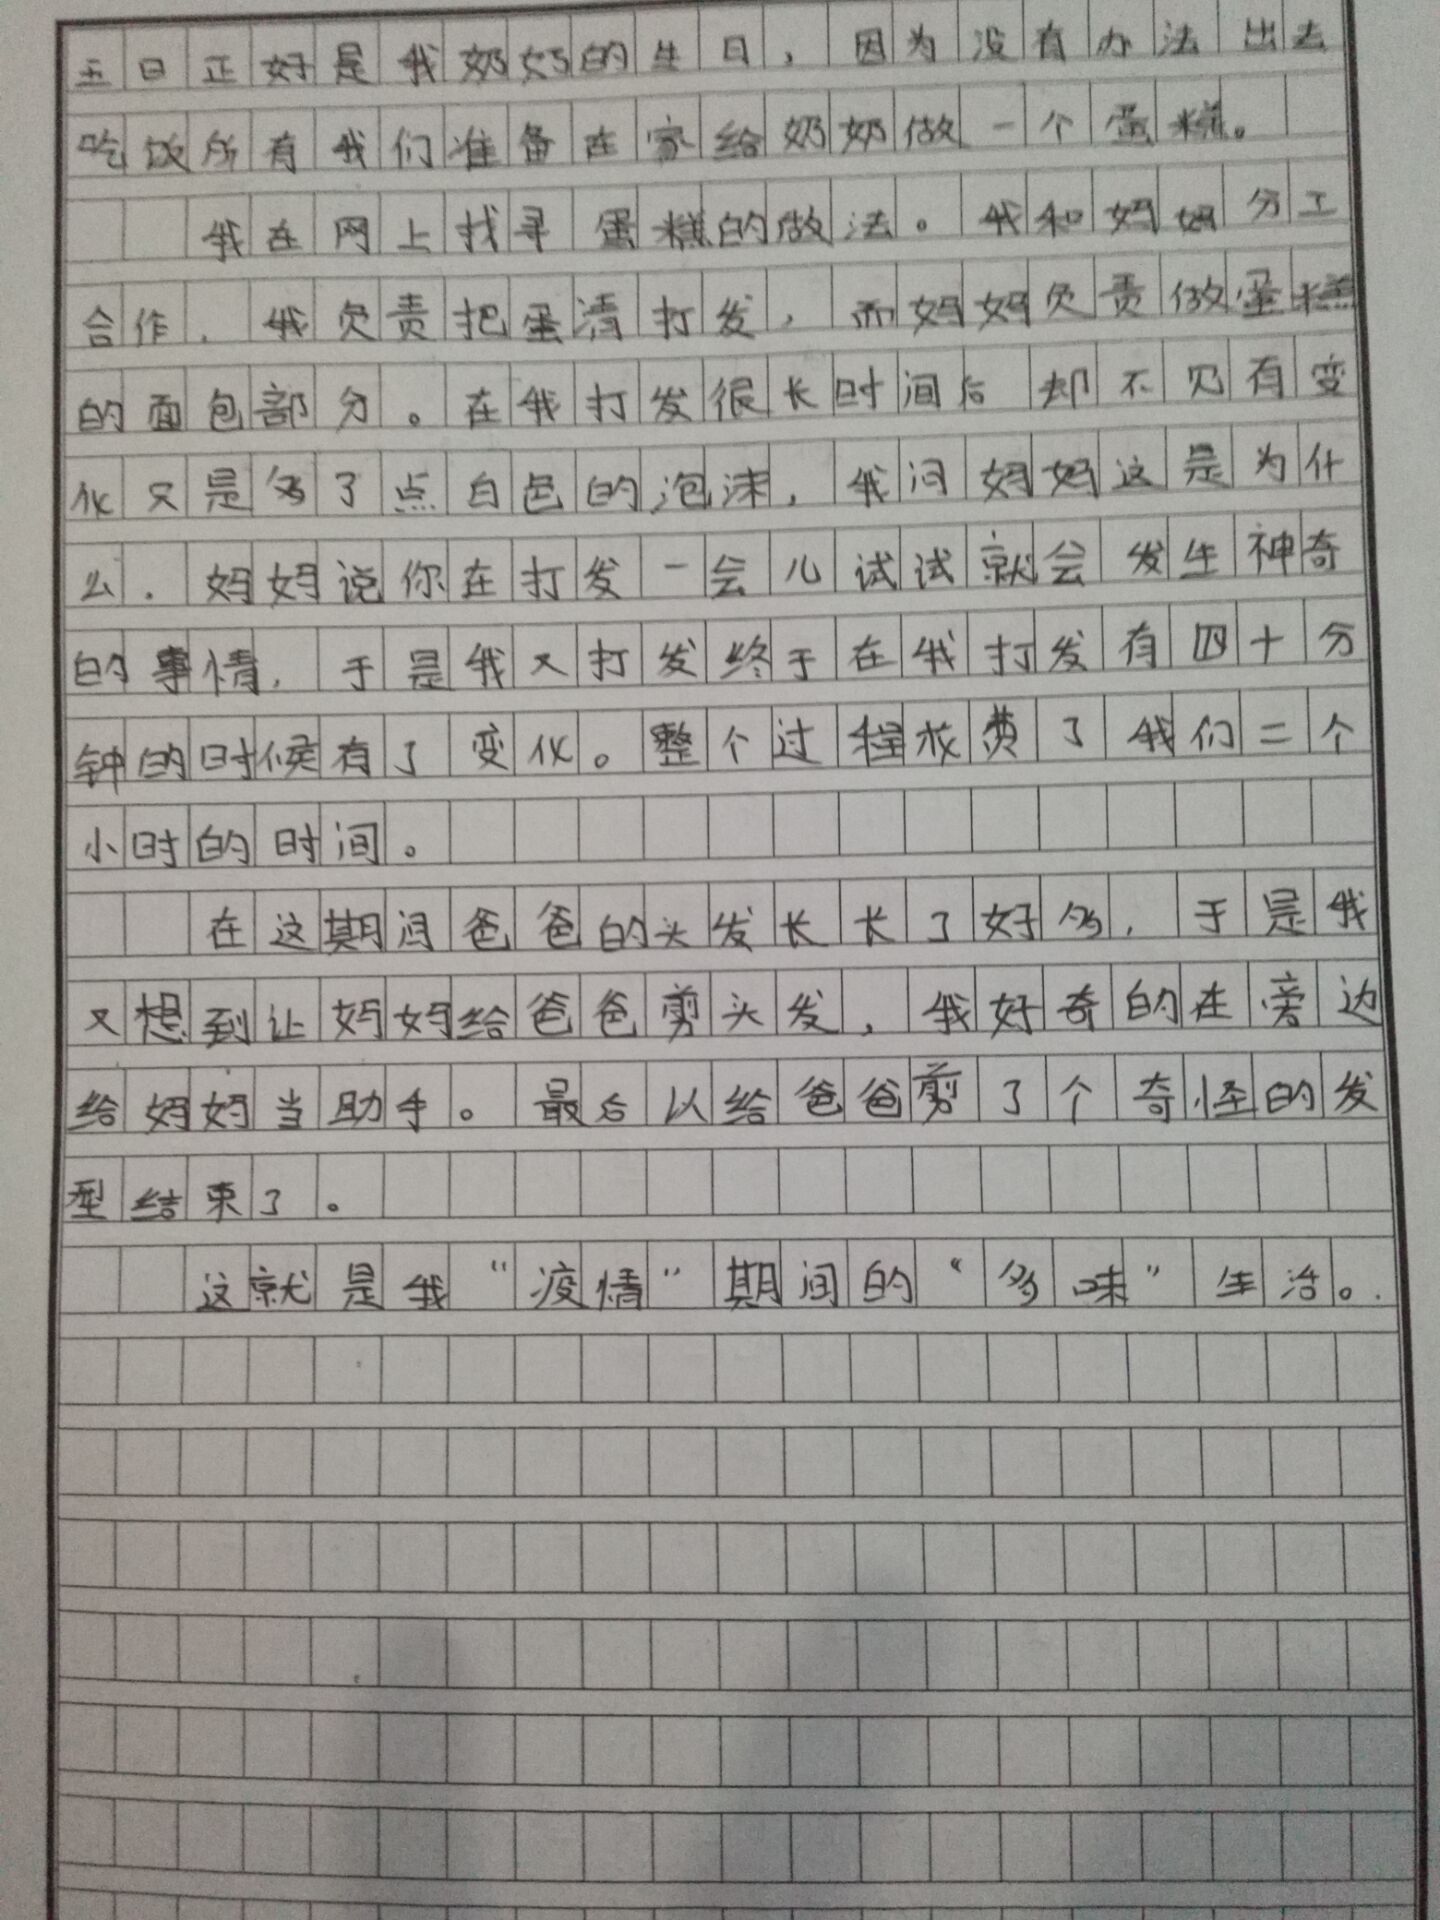 五日正好是我奶奶的生日，因为没有办法出去
吃饭所有我们准备在家给奶奶做一个蛋糕。
我在网上找寻蛋糕的做法。我和妈妈分工
合作，我负责把蛋清打发，而妈妈负责做蛋糕
的面包部分。在我打发很长时间后却不见有变
化又是多了点白色的泡沫，我问妈妈这是为什
么，妈妈说你在打发一会儿试试就会发生神奇
的事情，于是我又打发终于在我打发有四十分
钟的时候有了变化。整个过程花费了我们二个
小时的时间。
在这期间爸爸的头发长长了好多，于是我
又想到让妈妈给爸爸剪头发，我好奇的在旁边
给妈妈当助手。最后以给爸爸剪了个奇怪的发
型结束了。
这就是我“疫情”期间的“多味”生活。